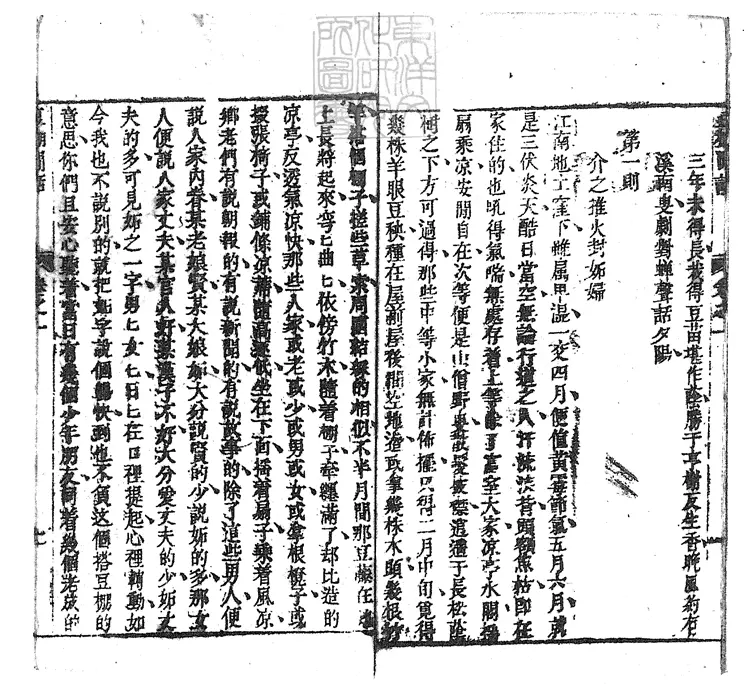 豆棚閒話 卷之一
三年未得長栽得豆苗堪作蔭勝于亭榭反生香晚風約有
溪南叟劇對蟬聲話夕陽
第一則
介之推火封妬婦
江南地土窪下雖屬卑濕一交四月便值黄霉節氣五月六月就
是三伏炎天酷日當空無論行道之人汗流浹背頭額焦枯即在
家住的也吼得氣喘無處存着上等除了富室大家凉亭水閣搖
扇乘凉安閒自在次等便是山僧野叟散髮披襟逍遥于長松蔭
樹之下方可過得那些中等小家無計佈擺只得二月中旬覓得
幾株羊眼豆秧種在屋前屋後閒空地邊或拿幾株木頭幾根竹
竿搭個棚子搓些草索周圍結綵的相似不半月間那豆藤在地
上長將起來弯匕曲匕依傍竹木隨着棚子牽纏滿了却比造的
凉亭反透氣凉快那些人家或老或少或男或女或拿根櫈子或
掇張椅子或鋪條凉蓆隨高逐低坐在下面搖着扇子乘着風凉
鄉老們有説朝報的有説新聞的有説故事的除了這些男人便
説人家內眷某老娘賢某大娘妬大分説賢的少説妬的多那女
人便説人家丈夫某官人好某漢子不好大分愛丈夫的少妬丈
夫的多可見妬之一字男匕女匕日匕在口裡提起心裡轉動如
今我也不説別的就把妬字説個暢快到也不負这個搭豆棚的
意思你們且安心聽着當日有幾個少年朋友同着幾個老成的
豆棚閒話 卷之一
東洋文化研究所圖書